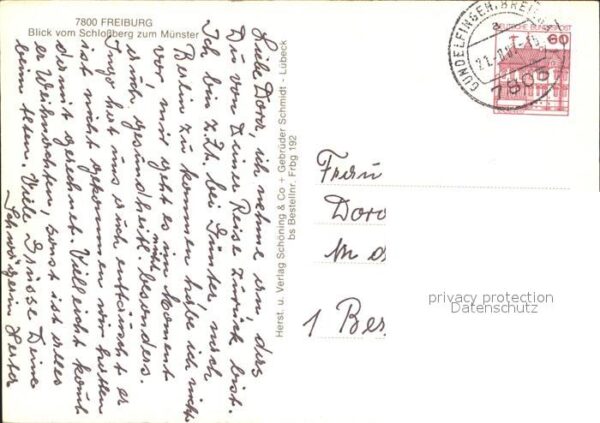 7800 FREIBURG
Blick vom Schloßberg zum Münster
Liebe Dora, ich nehme an dass
Du von Deiner Reise zurück bist.
Ich bin z.Zt. bei Günter nach
Berlin zu kommen habe ich nicht
vor, mir geht es im Moment
auch gesundheitl. nicht besonders.
Ingo hat uns auch enttäuscht er
ist nicht gekommen wir hatten
damit gerechnet. Vielleicht kommt
er Weihnachten, sonst ist alles
beim alten. Viele Grüsse Deine
Schwägerin Herta
Herst. u. Verlag Schöning & Co + Gebrüder Schmidt - Lübeck
bs Bestellnr. Frbg 192
GUNDELFINGEN, BREISGAU
a
7803
DEUTSCHE BUNDESPOST
60
Frau
Doro
1 Ber
privacy protection
Datenschutz